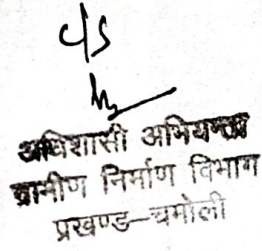 c/s
अधिशासी अभियन्ता
ग्रामीण निर्माण विभाग
प्रखण्ड-चमोली